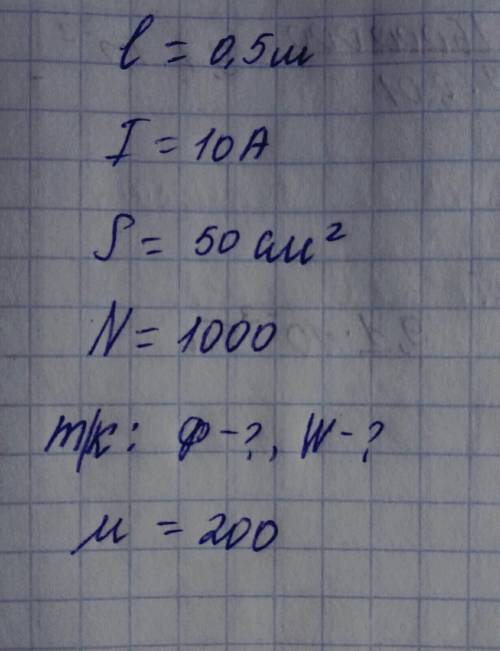 l = 0,5м
I = 10А
S = 50 см²
N = 1000
т/к: Ф-?, W-?
μ = 200